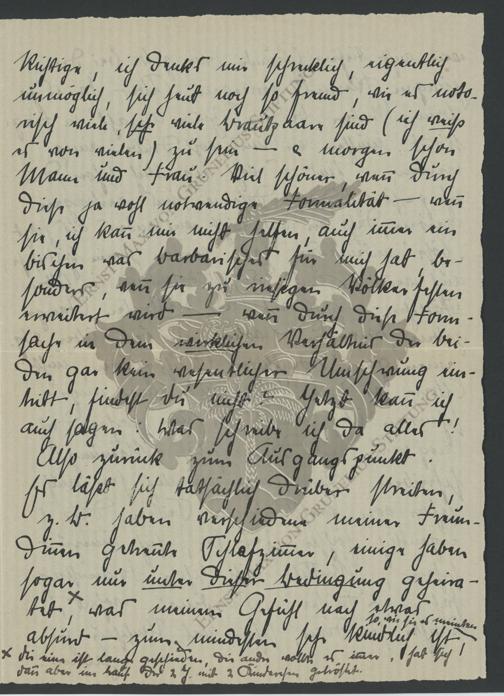 Richtige, ich denks mir schrecklich, eigentlich
unmöglich, sich heut noch so fremd, wie es noto-
risch viele, sehr viele Brautpaare sind (ich weiß
es von vielen) zu sein — & morgen schon
Mann und Frau. Viel schöner, weñ durch
diese ja wohl notwendige Formalität — weñ
sie, ich kañ mir nicht helfen, auch im̄er ein
bischen was barbarisches für mich hat, be-
sonders, weñ sie zu riesigen Völkerfesten
erweitert wird — weñ durch diese Form-
sache in dem wirklichen Verhältnis der bei-
den gar kein wesentlicher Umschwung ein-
tritt, findest du nicht? Jetzt kañ ich
auch sagen: was schreibe ich da alles!
Also zurück zum Ausgangspunkt.
Es läßt sich tatsächlich drüber streiten,
z. B. haben verschiedene meiner Freun-
diñen getreñte Schlafzim̄er, einige haben
sogar nur unter dieser Bedingung geheira-
tet x, was meinem Gefühl nach etwas
so, wie sie es meinten
absurd — zum mindesten sehr kindlich ist!
x die eine ist lange geschieden, die andre wollte es im̄er, hat sich
dañ aber im Lauf der 2 J. mit 2 Kinderchen getröstet.
ERNST MAX VON GRUNELIUS-STIFTUNG